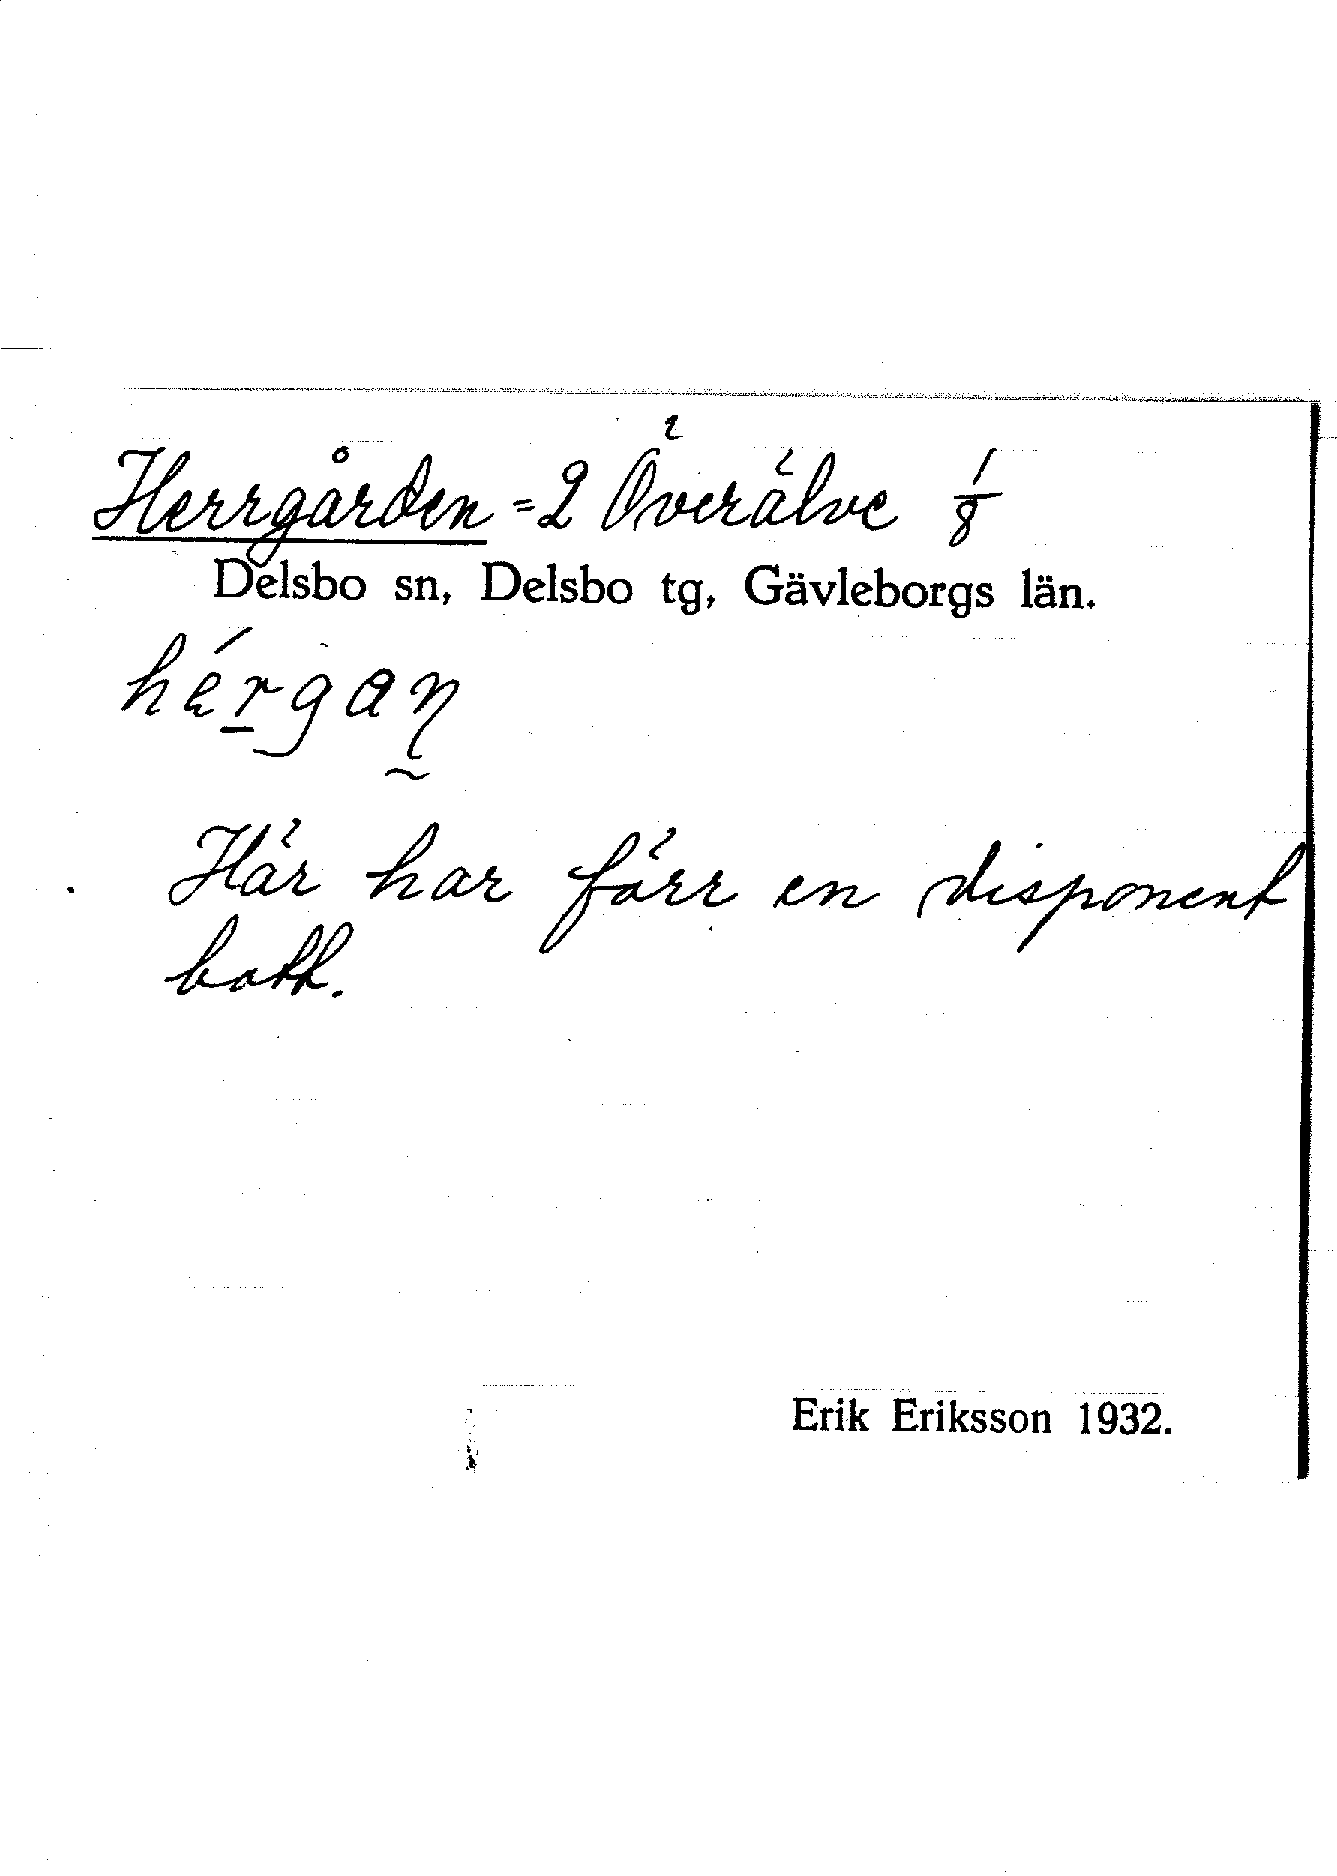 Herrgården = 2 Överälve 1/8
Delsbo sn, Delsbo tg, Gävleborgs län.
hérgaŋ̰
Här har förr en disponent
bott.
Erik Eriksson 1932.